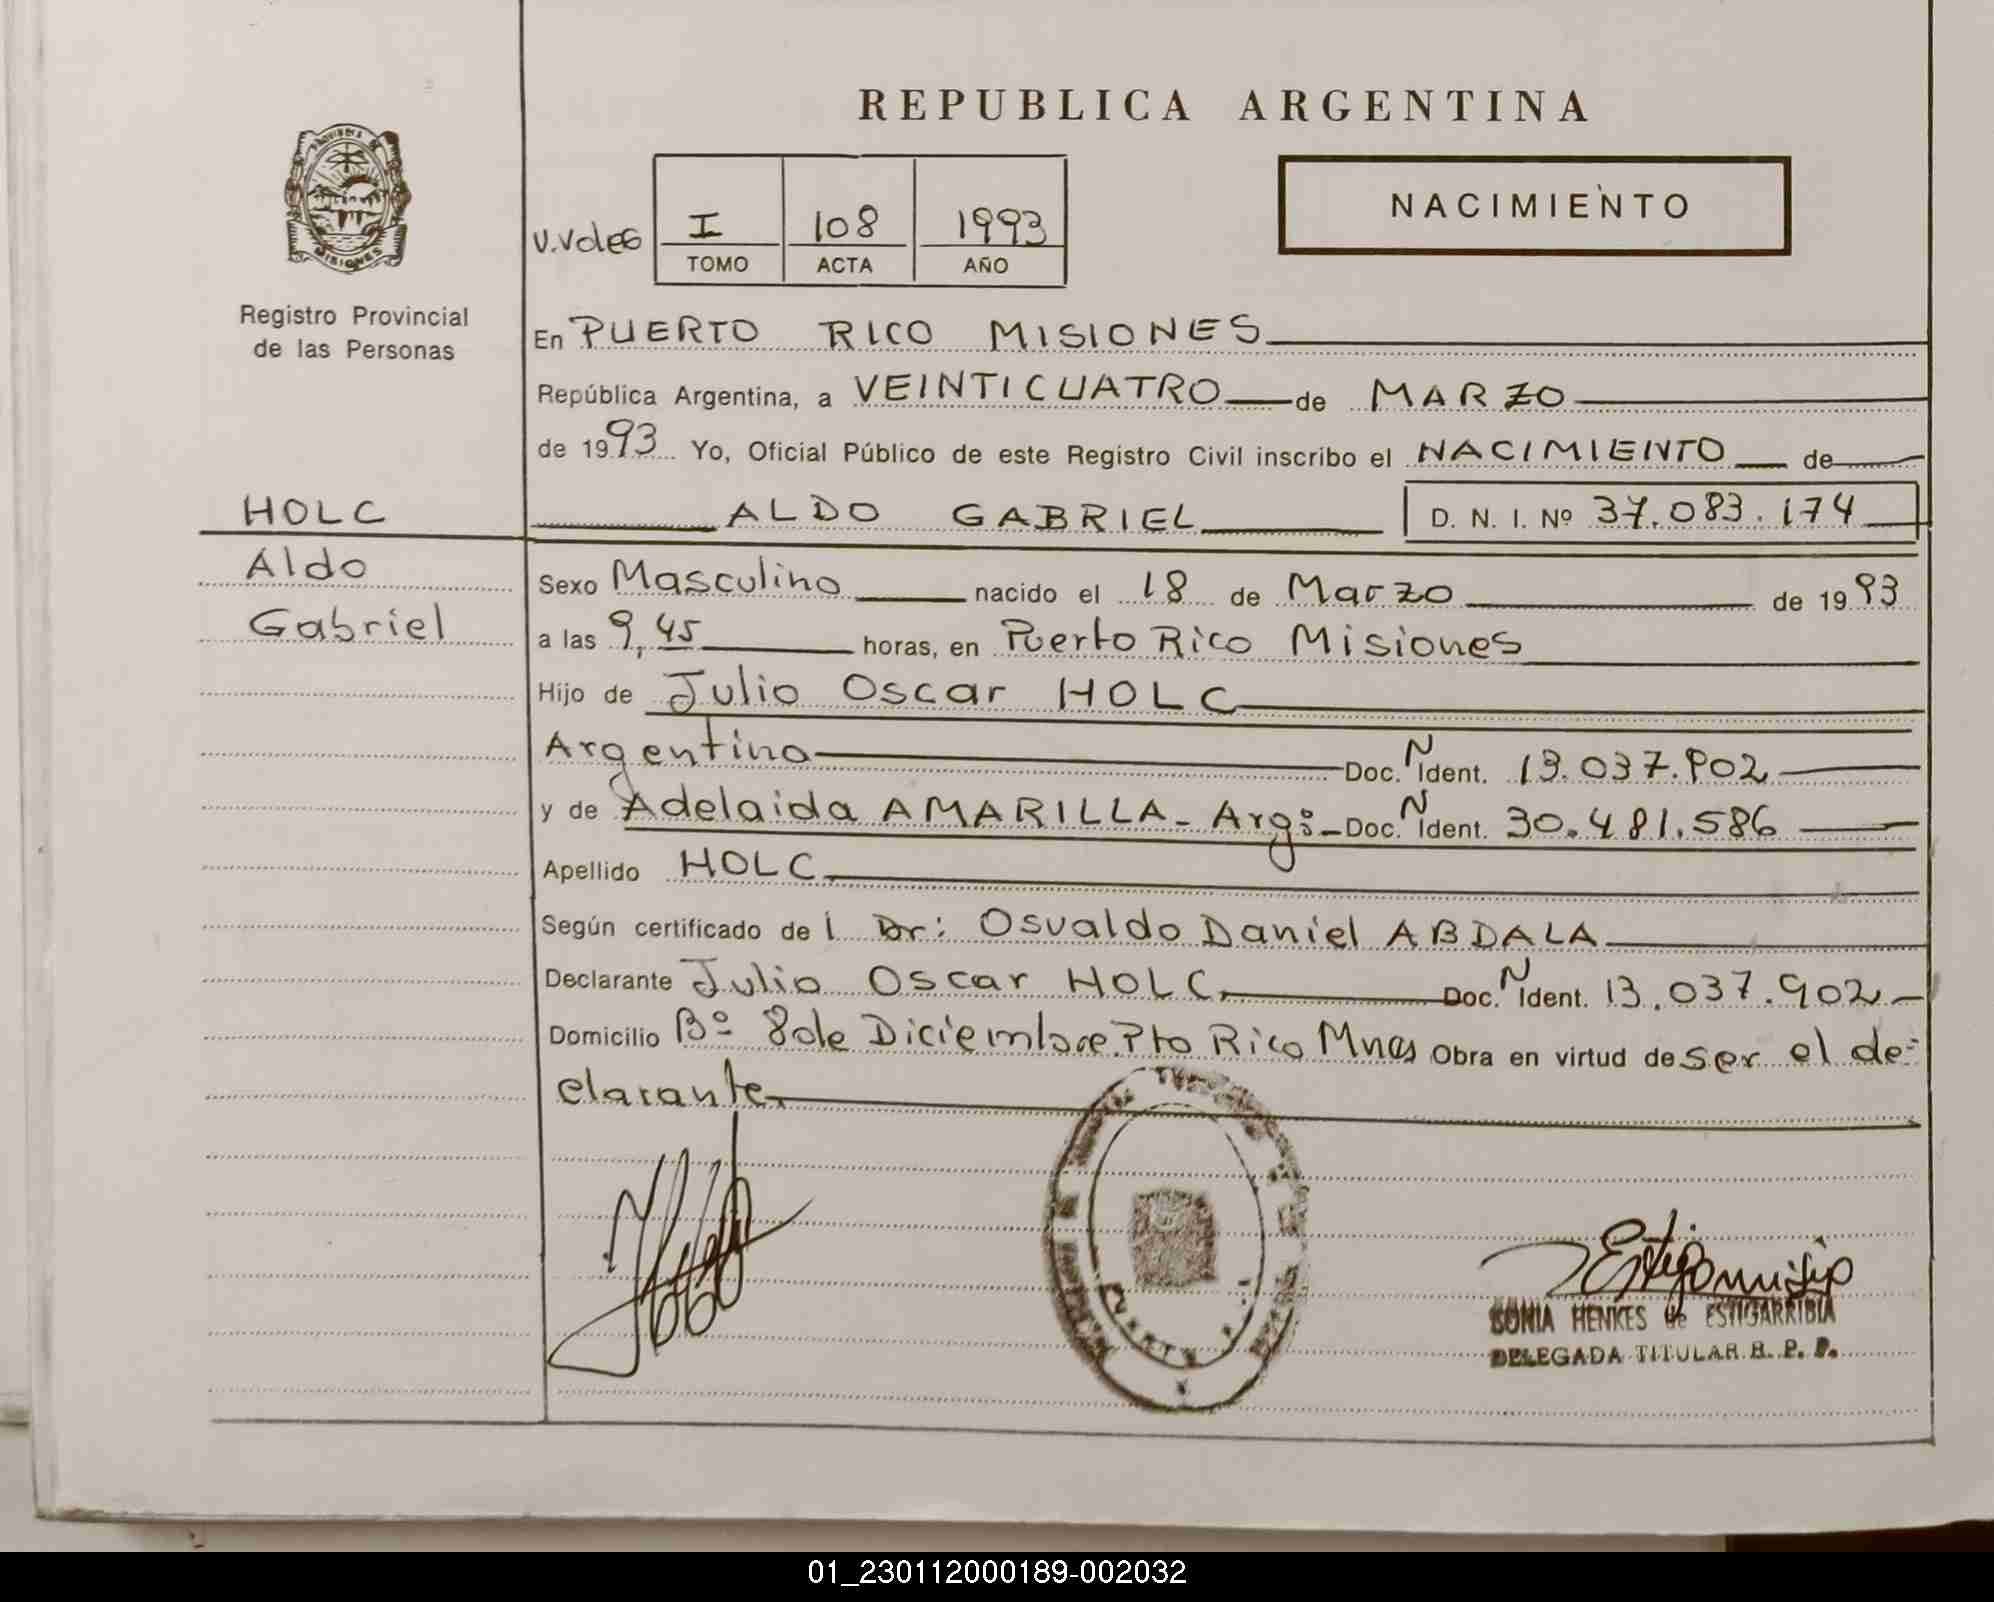 REPUBLICA ARGENTINA
PROVINCIA DE
MISIONES
Registro Provincial
de las Personas
NACIMIENTO
I 108 1993
TOMO ACTA AÑO
En PUERTO RICO MISIONES
República Argentina, a VEINTICUATRO de MARZO
de 1993 Yo, Oficial Público de este Registro Civil inscribo el NACIMIENTO de
HOLC
Aldo
Gabriel
ALDO GABRIEL D. N. I. Nº 37.083.174
Sexo Masculino nacido el 18 de Marzo de 1993
a las 9,45 horas, en Puerto Rico Misiones
Hijo de Julio Oscar HOLC
Argentino Doc. N Ident. 13.037.902
y de Adelaida AMARILLA - Arg: - Doc. N Ident. 30.481.586
Apellido HOLC
Según certificado de l Dr: Osvaldo Daniel ABDALA
Declarante Julio Oscar HOLC Doc. N Ident. 13.037.902
Domicilio Bº 8 de Diciembre Pto Rico Mnes Obra en virtud de ser el de=
clarante
SONIA HENKES de ESTIGARRIBIA
DELEGADA TITULAR R. P. P.
01_230112000189-002032